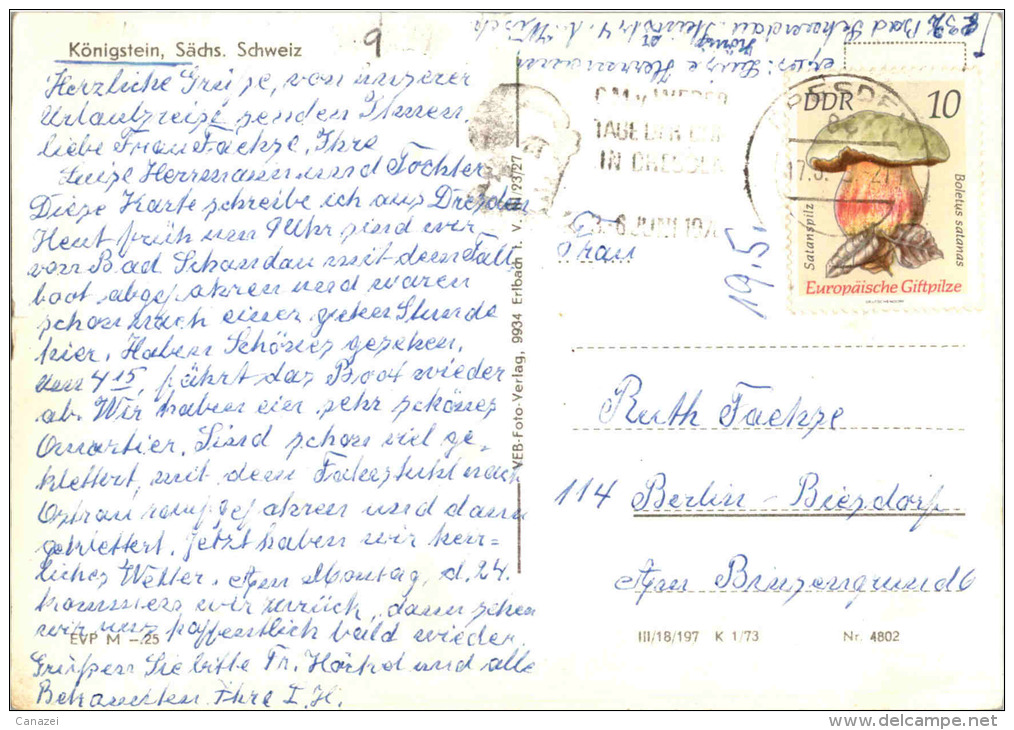 Königstein, Sächs. Schweiz
Herzliche Grüße, von unserer
Urlaubsreise senden Ihnen,
liebe Frau Faekse, Ihre
Luise Herrmann und Tochter.
Diese Karte schreibe ich aus Dresden
Heut früh um 9 Uhr sind wir
von Bad Schandau mit dem Falt
boot abgefahren und waren
schon nach einer guten Stunde
hier. Haben Schönes gesehen.
Um 4 15, fährt das Boot wieder
ab. Wir haben ein sehr schönes
Quartier. Sind schon viel ge-
klettert, mit dem Fahrstuhl nach
Ostrau raufgefahren und dann
geklettert. Jetzt haben wir herr=
liches Wetter. Am Montag, d. 24.
kommen wir zurück, dann sehen
wir uns hoffentlich bald wieder.
Grüßen Sie bitte Fr. Höchd und alle
Bekannten Ihre L. H.
EVP M -.25
VEB-Foto-Verlag, 9934 Erlbach i. V. IV/23/27
9
Abs: Luise Herrmann
832 Bad Schandau
TAGE DER
IN DRESDEN
-6. JUNI 197
DRESDEN
DDR 10
Satanspilz
Boletus satanas
Europäische Giftpilze
19.5.
Frau
Ruth Faekse
114 Berlin-Biesdorf
Am Binsengrund 6
III/18/197 K 1/73 Nr. 4802
Canazei
www.delcampe.net